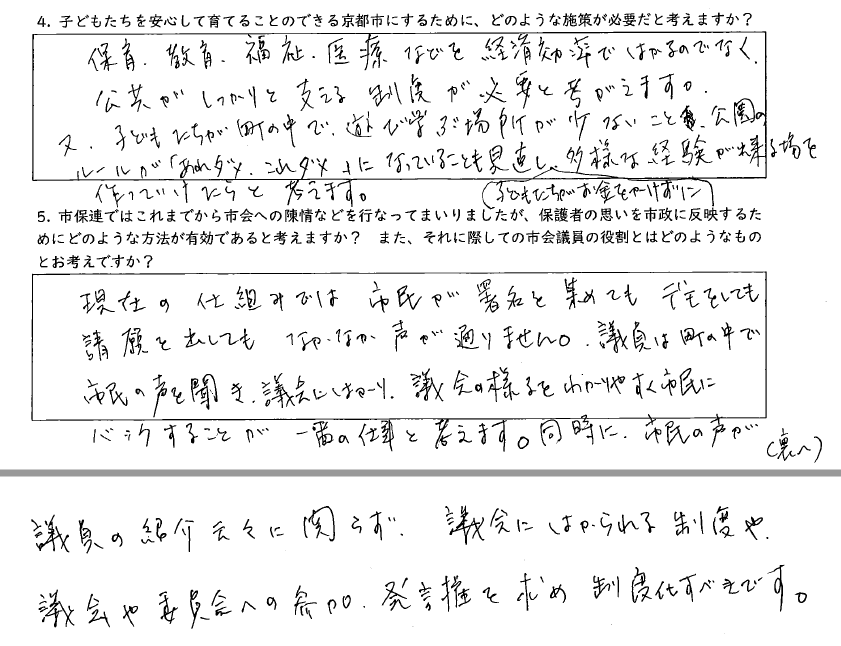 4. 子どもたちを安心して育てることのできる京都市にするために、どのような施策が必要だと考えますか？
保育、教育、福祉、医療などを経済効率ではかるのでなく、
公共がしっかりと支える制度が必要と考がえます。
又、子どもたちが町の中で、遊び学ぶ場所が少ないこと、公園の
ルールが「あれダメ、これダメ」になっていることも見直し、多様な経験が出来る場を
(子どもたちがお金をかけずに)
作っていけたらと考えます。
5. 市保連ではこれまでから市会への陳情などを行なってまいりましたが、保護者の思いを市政に反映するた
めにどのような方法が有効であると考えますか？　また、それに際しての市会議員の役割とはどのようなもの
とお考えですか？
現在の仕組みでは市民が署名を集めてもデモをしても
請願を出してもなかなか声が通りません。議員は町の中で
市民の声を聞き、議会にはかり、議会の様子をわかりやすく市民に
バックすることが一番の仕事と考えます。同時に、市民の声が
(裏へ)
議員の紹介云々に関らず、議会にはかられる制度や、
議会や委員会への参加、発言権を求め制度化すべきです。